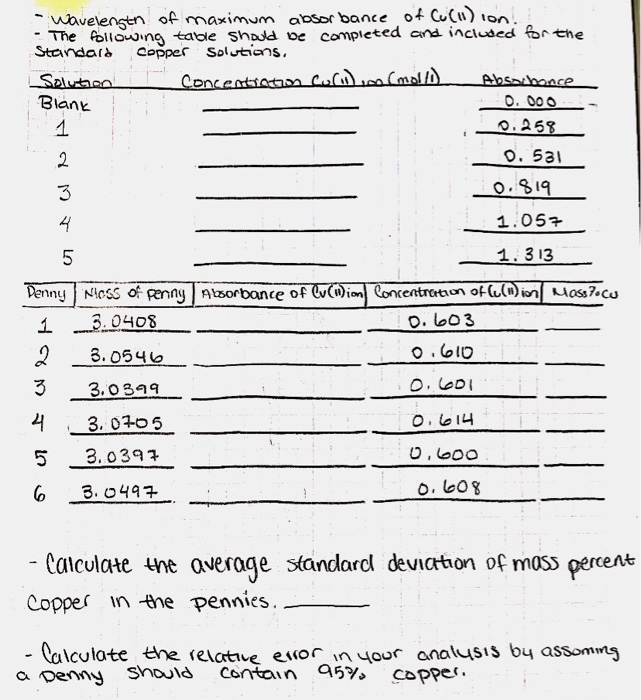 - Wavelength of maximum absorbance of Cu(II) ion.
- The following table should be completed and included for the
Standard Copper Solutions.
Solution Concentration Cu(II) ion (mol/l) Absorbance
Blank 0.000
1 0.258
2 0.531
3 0.819
4 1.057
5 1.313
Penny Mass of penny Absorbance of Cu(II) ion Concentration of Cu(II) ion Mass % Cu
1 3.0408 0.603
2 3.0546 0.610
3 3.0399 0.601
4 3.0705 0.614
5 3.0397 0.600
6 3.0497 0.608
- Calculate the average standard deviation of mass percent
Copper in the pennies.
- Calculate the relative error in your analysis by assuming
a penny should contain 95% copper.